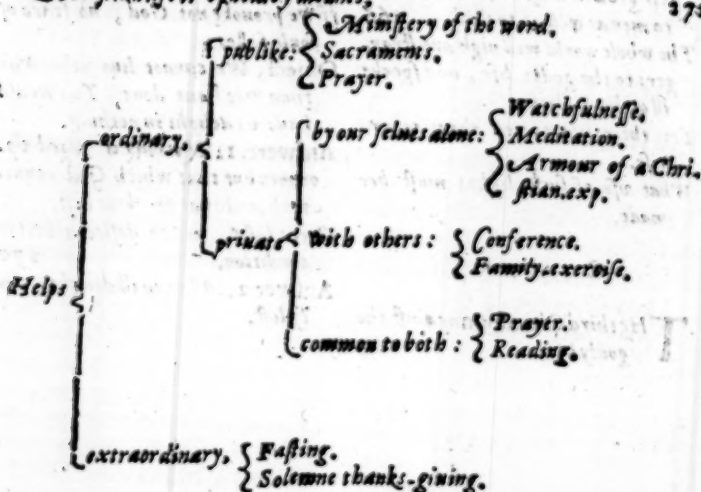 273
publike:
Ministery of the word.
Sacraments.
Prayer.
ordinary,
by our ſelues alone:
Watchfulneſſe.
Meditation.
Armour of a Chri-
ſtian.exp.
priuate
with others:
Conference.
Family-exerciſe.
Helps
common to both:
Prayer.
Reading.
extraordinary,
Faſting.
Solemne thanks-giuing.